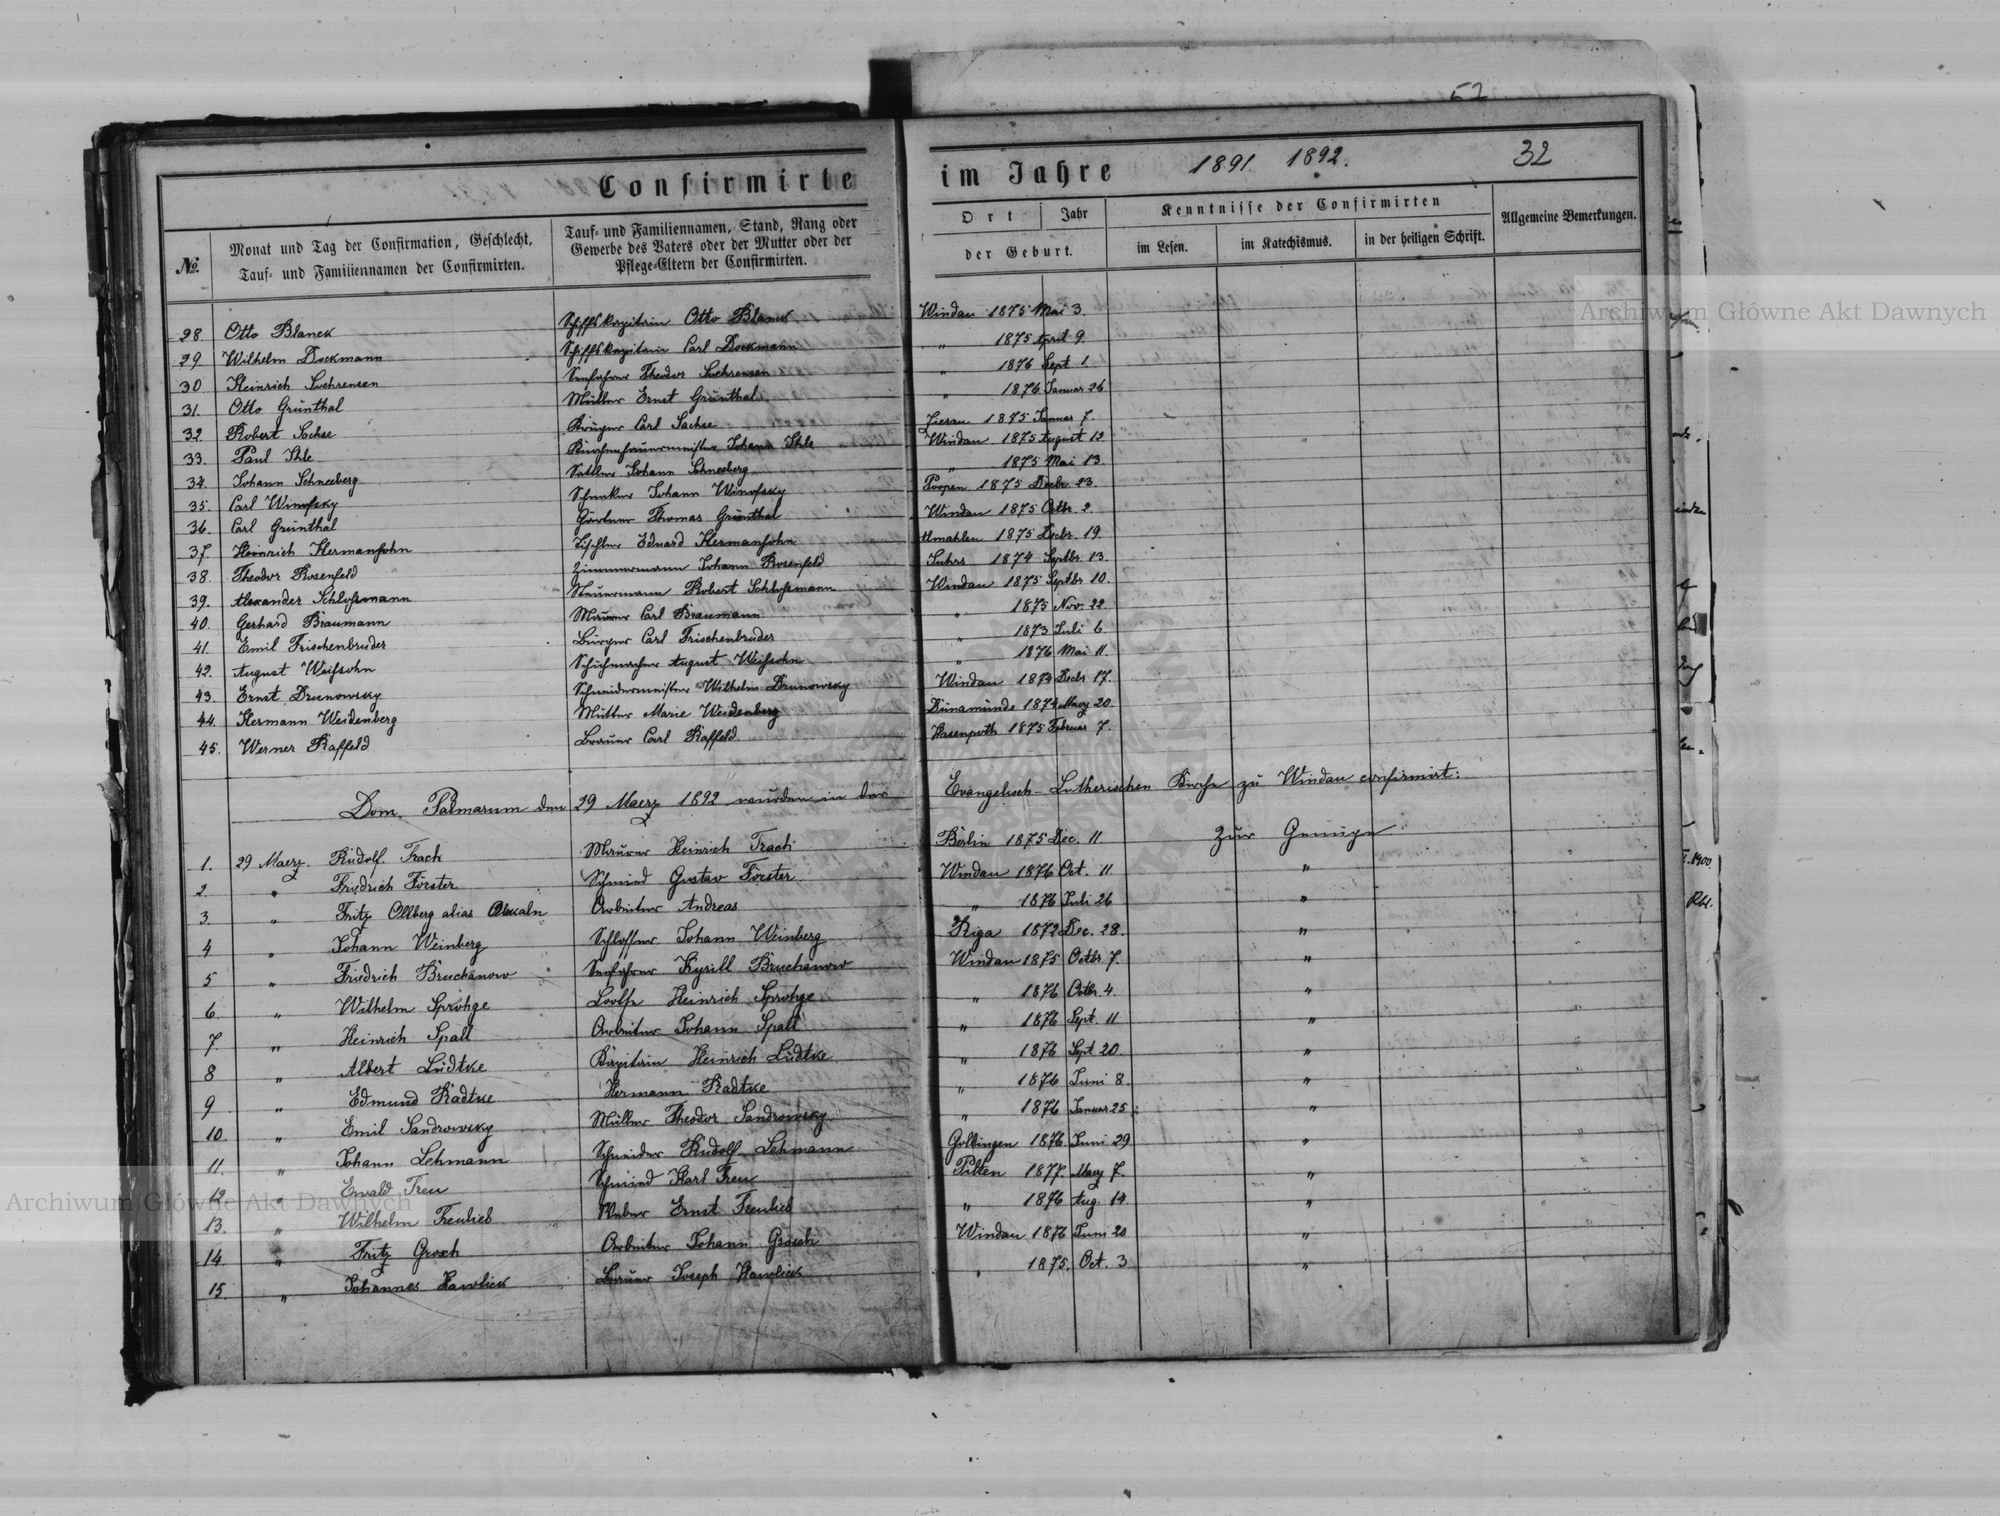 52
Confirmirte im Jahre 1891. 1892. 32
№.
Monat und Tag der Confirmation, Geschlecht, Tauf- und Familiennamen der Confirmirten.
Tauf- und Familiennamen, Stand, Rang oder Gewerbe des Vaters oder der Mutter oder der Pflege-Eltern der Confirmirten.
Ort | Jahr
der Geburt.
Kenntnisse der Confirmirten
im Lesen. im Katechismus. in der heiligen Schrift.
Allgemeine Bemerkungen.
28. Otto Blanck Schiffskapitain Otto Blanck Windau 1875 Mai 3.
29. Wilhelm Dockmann Schiffskapitain Carl Dockmann " 1875 April 9.
30 Heinrich Suhrensen Seefahrer Theodor Suhrensen " 1876 Sept. 1.
31. Otto Grünthal Müller Ernst Grünthal " 1876 Januar 26
32 Robert Sachse Krüger Carl Sachse Zierau 1875 Januar 7.
33. Paul Ihle Johann Ihle Windau 1875 August 12
34. Johann Schneeberg Sattler Johann Schneeberg " 1875 Mai 13.
35. Carl Winofsky Schenker Johann Winofsky Poopen 1875 Decbr. 23.
36. Carl Grünthal Gärtner Thomas Grünthal Windau 1875 Octbr. 2.
37. Heinrich Hermansohn Tischler Eduard Hermansohn Amahlen 1875 Decbr. 19.
38. Theodor Rosenfeld Zimmermann Johann Rosenfeld Suhrs 1874 Septbr. 13.
39. Alexander Schlossmann Steuermann Robert Schlossmann Windau 1875 Septbr 10.
40. Gerhard Braumann Maurer Carl Braumann " 1875 Nov. 22.
41. Emil Frischenbruder Bürger Carl Frischenbruder " 1873 Juli 6.
42. August Weissohn Schuhmacher August Weissohn " 1876 Mai 11.
43. Ernst Drunowsky Schneidermeister Wilhelm Drunowsky Windau 1874 Decbr 17.
44. Hermann Weidenberg Mutter Marie Weidenberg Dünamünde 1874 Maerz 20.
45. Werner Raffeld Brauer Carl Raffeld. Hasenpoth 1875 Februar 7.
Dom. Palmarum den 29 Maerz 1892 wurden in der Evangelisch-Lutherischen Kirche zu Windau confirmirt:
1. 29 Maerz. Rudolf Trach Maurer Heinrich Trach Berlin 1875 Dec. 11. Zur Genüge
2. " Friedrich Förster Schmied Gustav Förster Windau 1876 Oct. 11 "
3. " Fritz Ollberg alias Arbeiter Andreas " 1876 Juli 26 "
4 " Johann Weinberg Schlosser Johann Weinberg Riga 1872 Dec. 28. "
5 " Friedrich Bruchanow Seefahrer Kyrill Bruchanow Windau 1875 Octbr 7. "
6. " Wilhelm Sprohge Lootse Heinrich Sprohge " 1876 Octbr. 4. "
7. " Heinrich Spall Arbeiter Johann Spall " 1876 Sept. 11 "
8 " Albert Lüdtke Kapitain Heinrich Lüdtke " 1876 Sept 20. "
9 " Edmund Radtke Hermann Radtke " 1876 Juni 8. "
10. " Emil Sandrowsky Müller Theodor Sandrowsky " 1876 Januar 25. "
11. " Johann Lehmann Schneider Rudolf Lehmann Goldingen 1876 Juni 29. "
12 " Ewald Treu Schmied Karl Treu Pilten 1877. Maerz 7. "
13. " Wilhelm Freulieb Weber Ernst Freulieb " 1876 Aug. 14. "
14. " Fritz Grosch Arbeiter Johann Grosch Windau 1876 Juni 20 "
15. " Johannes Hawlick Brauer Joseph Hawlick " 1875. Oct. 3 "
Archiwum Główne Akt Dawnych
Archiwum Główne Akt Dawnych